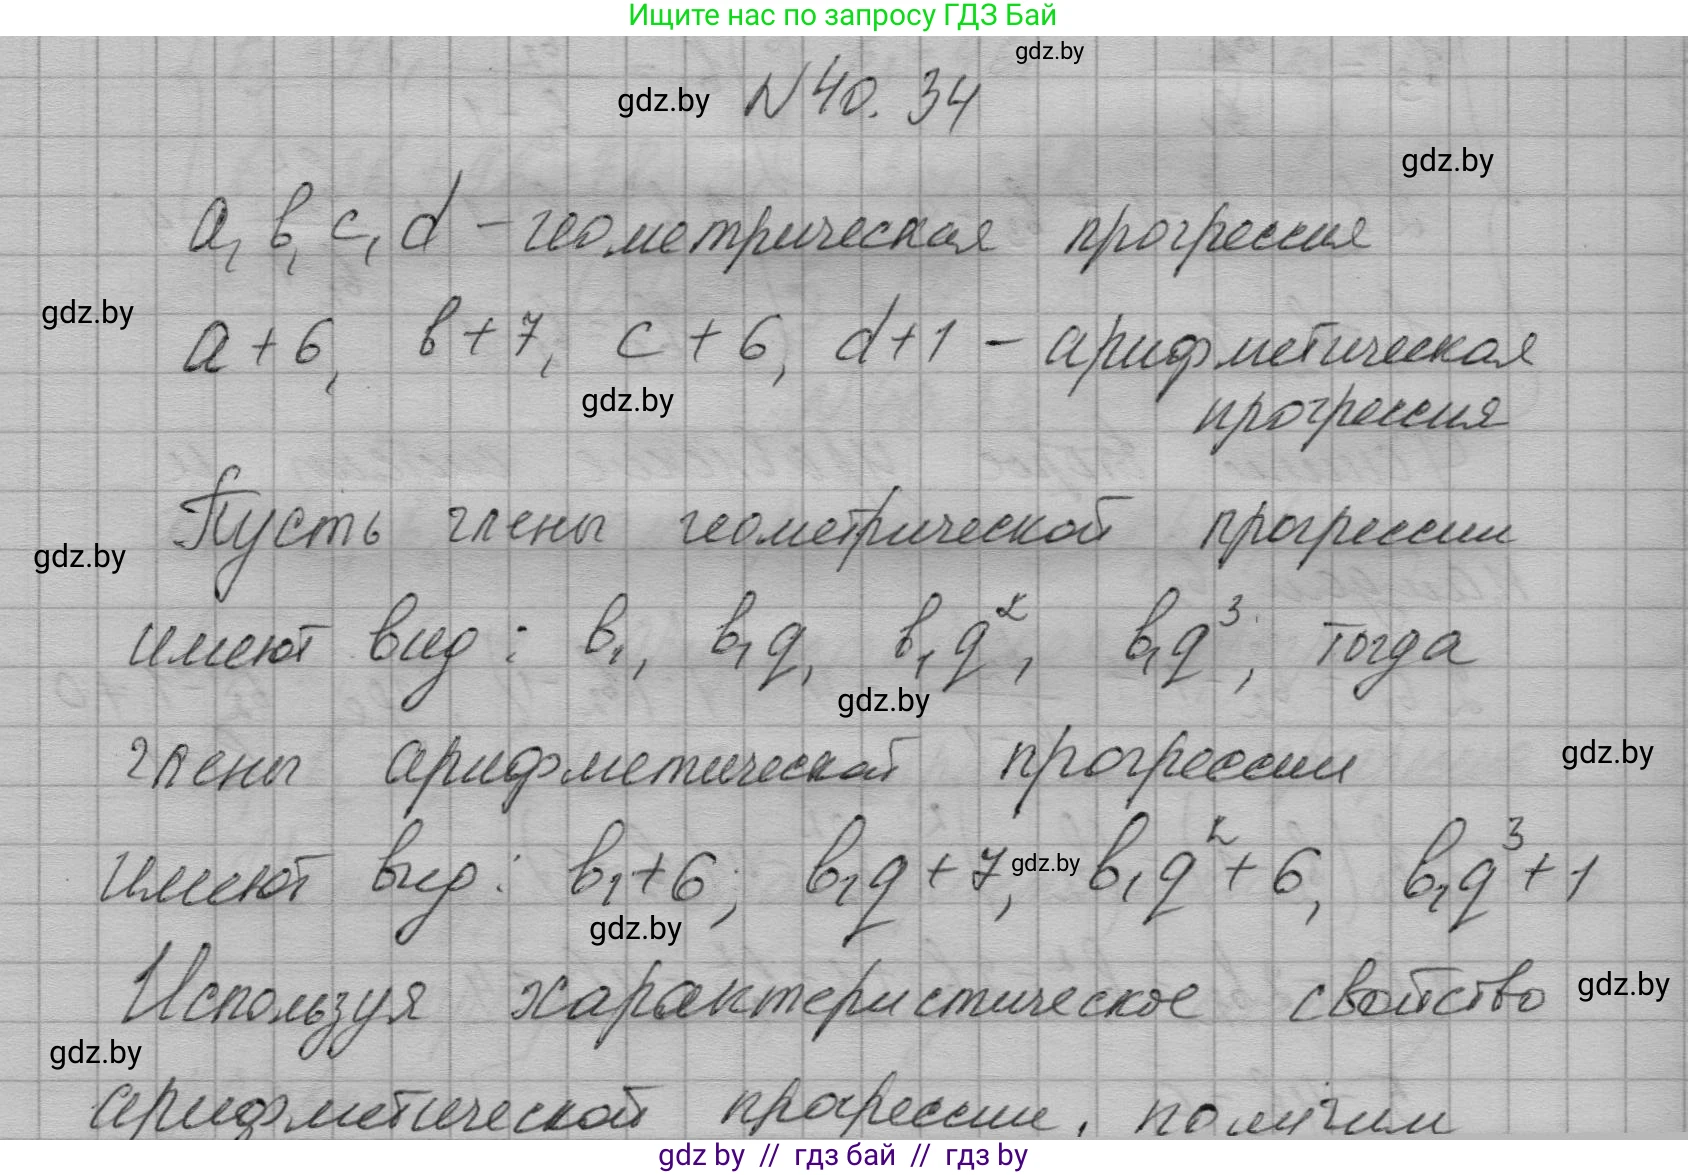 Ищите нас по запросу ГДЗ Бай
gdz.by
gdz.by N 40. 34
gdz.by
a, b, c, d - геометрическая прогрессия
gdz.by
a + 6, b + 7, c + 6, d + 1 - арифметическая
gdz.by
прогрессия
Пусть члены геометрической прогрессии
gdz.by
имеют вид: b₁, b₁q, b₁q², b₁q³, тогда
gdz.by
члены арифметической прогрессии
gdz.by
имеют вид: b₁+6; b₁q+7, gdz.by b₁q²+6, b₁q³+1
gdz.by
Используя характеристическое свойство
gdz.by
gdz.by
арифметической прогрессии, получим
gdz by // гдз бай // гдз by